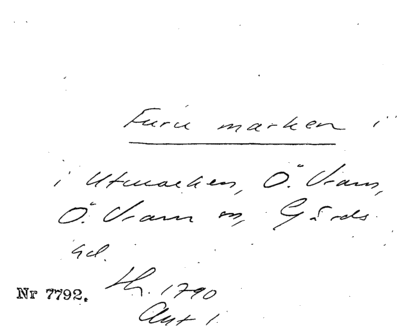 Furu marken i
i Utmarken, Ö. Vram,
Ö. Vram sn, Gärds
hd.
Nr 7792. th. 1790
Akt 1.